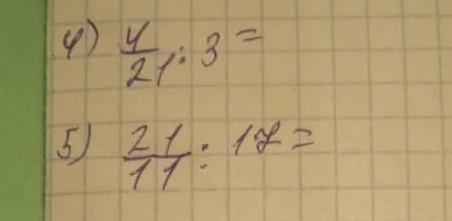 4) 4/21 : 3 =
5) 21/11 : 17 =